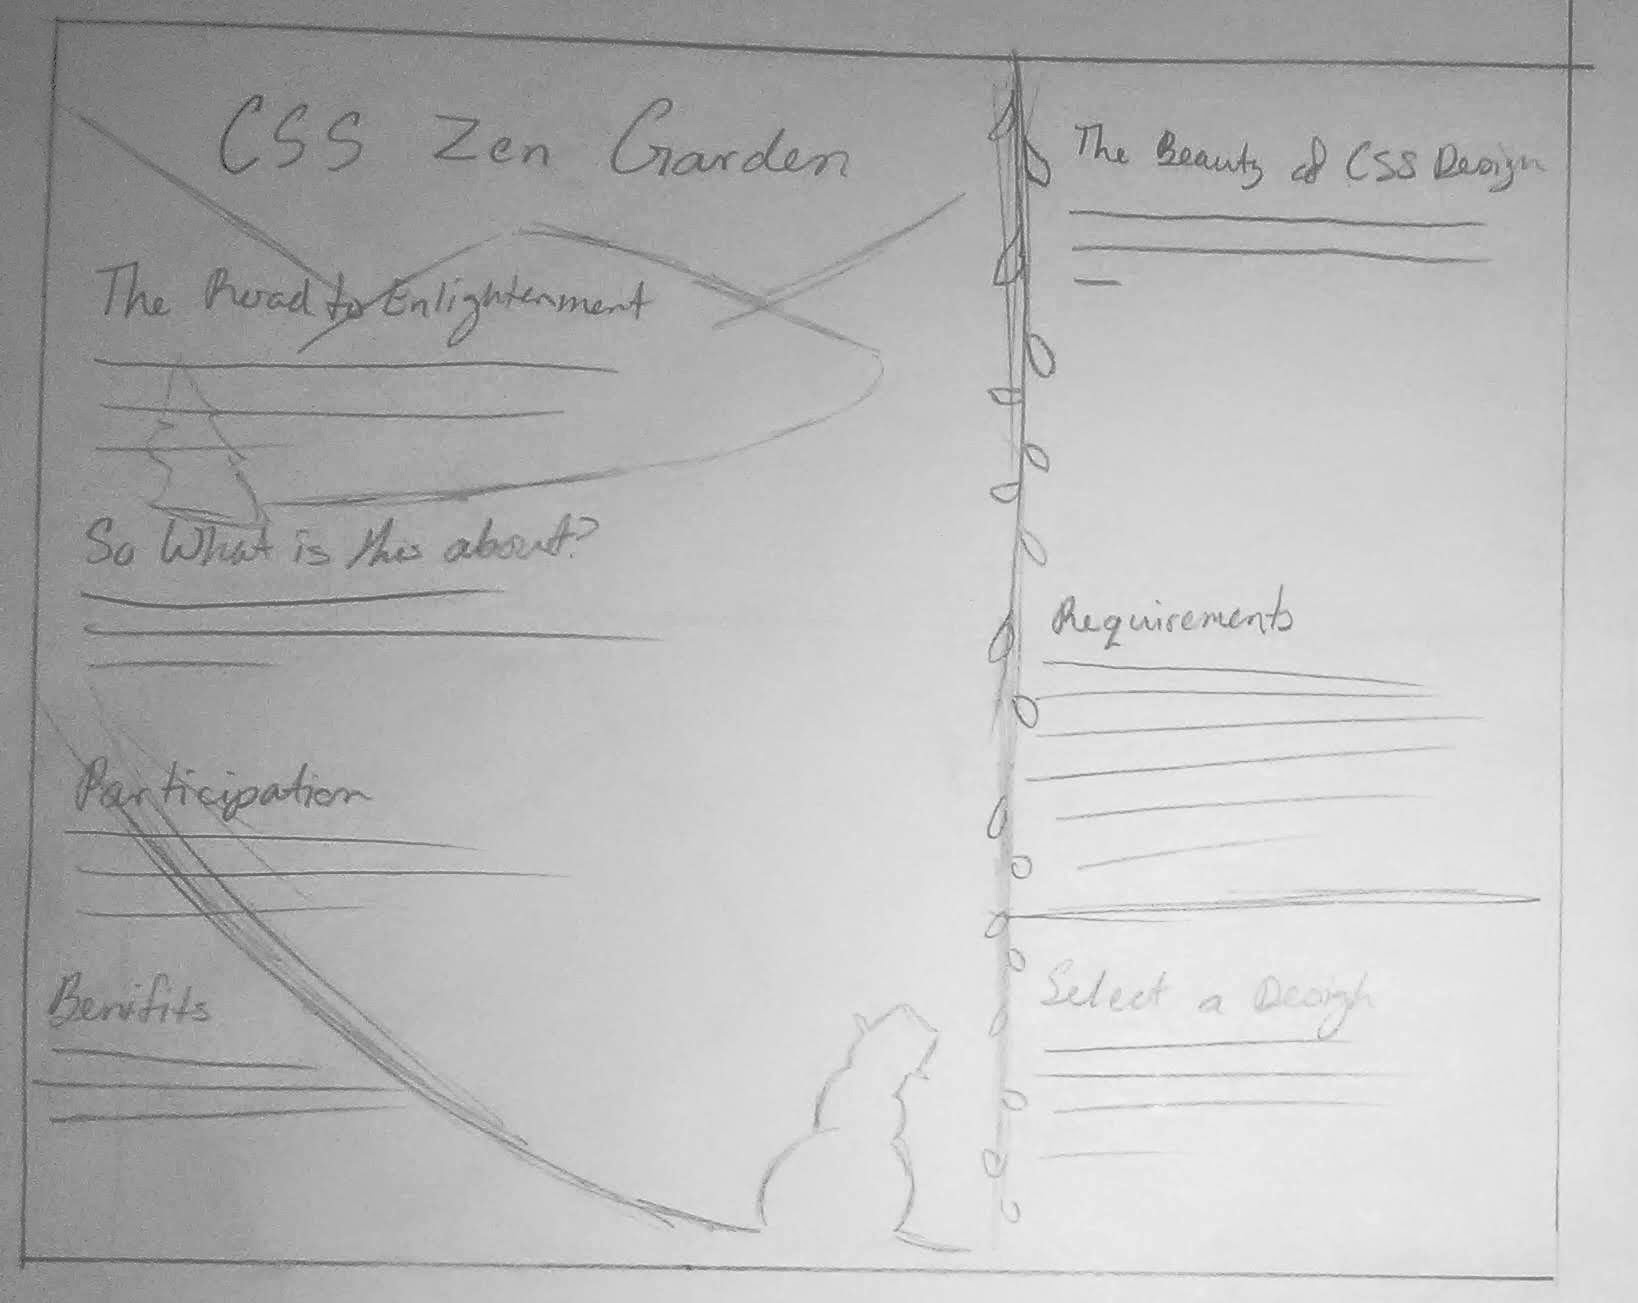 CSS Zen Garden
The Road to Enlightenment
So What is this about?
Participation
Benifits
The Beauty of CSS Design
Requirements
Select a Design